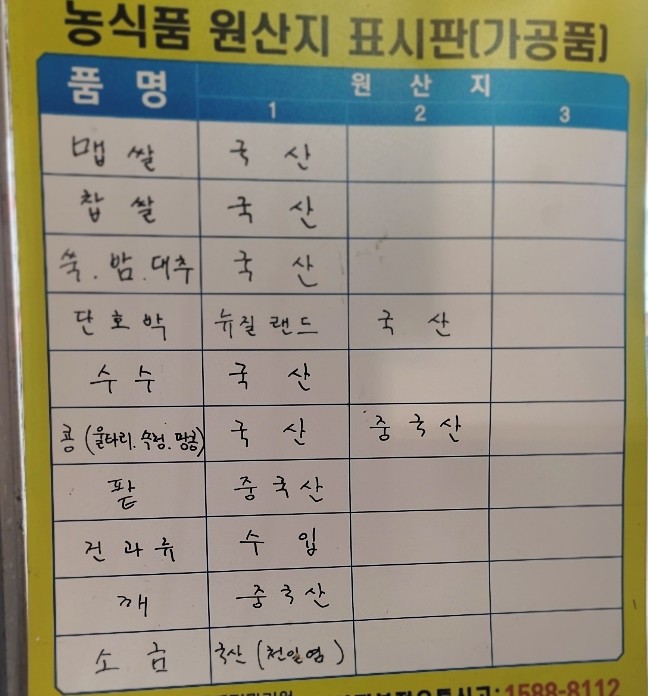 농식품 원산지 표시판(가공품)
품 명 원 산 지
1 2 3
맵 쌀 국 산
찹 쌀 국 산
쑥.밤.대추 국 산
단호박 뉴질랜드 국 산
수수 국 산
콩(울타리.속청.땅콩) 국 산 중국산
팥 중국산
견과류 수 입
깨 중국산
소 금 국산(천일염)
1588-8112